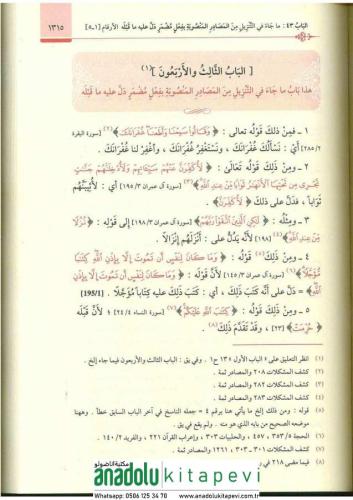 الباب ٤٣ : ما جاءَ في التَّنزيلِ مِنَ المَصادِرِ المَنْصوبَةِ بِفِعْلٍ مُضْمَرٍ دَلَّ عليه ما قَبْلَه الأرقام [١-٥]
١٣١٥
[ البَابُ الثَّالِثُ والأَرْبَعُونَ ](١)
هذا بَابُ ما جَاءَ في التَّنْزِيلِ مِنَ المَصَادِرِ المَنْصُوبَةِ بِفِعْلٍ مُضْمَرٍ دَلَّ عليه ما قَبْلَهُ
١ - فمِنْ ذلكَ قَوْلُهُ تعالى : ﴿ وَقَالُوا سَمِعْنَا وَأَطَعْنَا غُفْرَانَكَ ﴾(٢) [سورة البقرة
٢٨٥/٢] أي : نَسْأَلُكَ غُفْرَانَكَ ، ونَسْتَغْفِرُ غُفْرَانَكَ ، واغْفِرْ لنا غُفْرَانَكَ .
٢ - ومِنْ ذلكَ قَوْلُهُ تَعَالَىٰ : ﴿ لَأُكَفِّرَنَّ عَنْهُمْ سَيِّئَاتِهِمْ وَلَأُدْخِلَنَّهُمْ جَنَّاتٍ
تَجْرِي مِن تَحْتِهَا الْأَنْهَارُ ثَوَابًا مِّنْ عِندِ اللَّهِ ﴾(٣) [سورة آل عمران ١٩٥/٣] أي : لأُثِيبَنَّهُمْ
ثَوَاباً ، فدَلَّ على ذلكَ ﴿ لَأُكَفِّرَنَّ ﴾ .
٣ - ومِثْلُهُ : ﴿ لَكِنِ الَّذِينَ اتَّقَوْا رَبَّهُمْ ﴾ [سورة آل عمران ١٩٨/٣] إلى قَوْلِهِ : ﴿ نُزُلًا
مِّنْ عِندِ اللَّهِ ﴾(٤) [١٩٨] لأنَّهُ يَدُلُّ على : أَنْزَلَهُم إِنْزَالاً .
٤ - ومِنْ ذلكَ(٥) قَوْلُهُ : ﴿ وَمَا كَانَ لِنَفْسٍ أَن تَمُوتَ إِلَّا بِإِذْنِ اللَّهِ كِتَابًا
مُّؤَجَّلًا ﴾(٦) [سورة آل عمران ١٤٥/٣] لأنَّ قَوْلَهُ : ﴿ وَمَا كَانَ لِنَفْسٍ أَن تَمُوتَ إِلَّا بِإِذْنِ
اللَّهِ ﴾ = دَلَّ على أنَّه كَتَبَ ذلكَ ، أي : كَتَبَ ذلكَ عليه كِتَاباً مُؤَجَّلًا . [195/1]
٥ - ومِنْ ذلكَ قَوْلُهُ : ﴿ كِتَابَ اللَّهِ عَلَيْكُمْ ﴾(٧) [سورة النساء ٢٤/٤] ؛ لأنَّ قَبْلَهُ
﴿ حُرِّمَتْ ﴾ [٢٣] ، وقد تَقَدَّمَ ذلكَ(٨) .
(١) انظر التعليق على « الباب الأول » ١٣ ح١ . وفي يق : الباب الثالث والأربعون فيما جاء إلخ .
(٢) كشف المشكلات ٢٠٨ والمصادر ثمة .
(٣) كشف المشكلات ٢٨٣ والمصادر ثمة .
(٤) كشف المشكلات ٢٨٤ والمصادر ثمة .
(٥) قوله : ومن ذلك إلخ ما يأتي هنا برقم ٤ = جعله الناسخ في آخر الباب السابق خطأ . وههنا
موضعه الصحيح من بابه الذي هو منه . ولم يقع في يق .
(٦) الحجة ٣٥٣/٥ ، ٤٥٧ ، والحلبيات ٣٠٣ ، وإعراب القرآن ٢٢١ ، والفريد ١٤٠/٢ .
(٧) كشف المشكلات ٣٠١ - ٣٠٣ ، ١٢١١ والمصادر ثمة .
(٨) فيما مضى ٢١٨ في
مكتبة اناضولو
anadolu kitapevi
Whatsapp: 0506 125 34 70 www.anadolukitapevi.com.tr